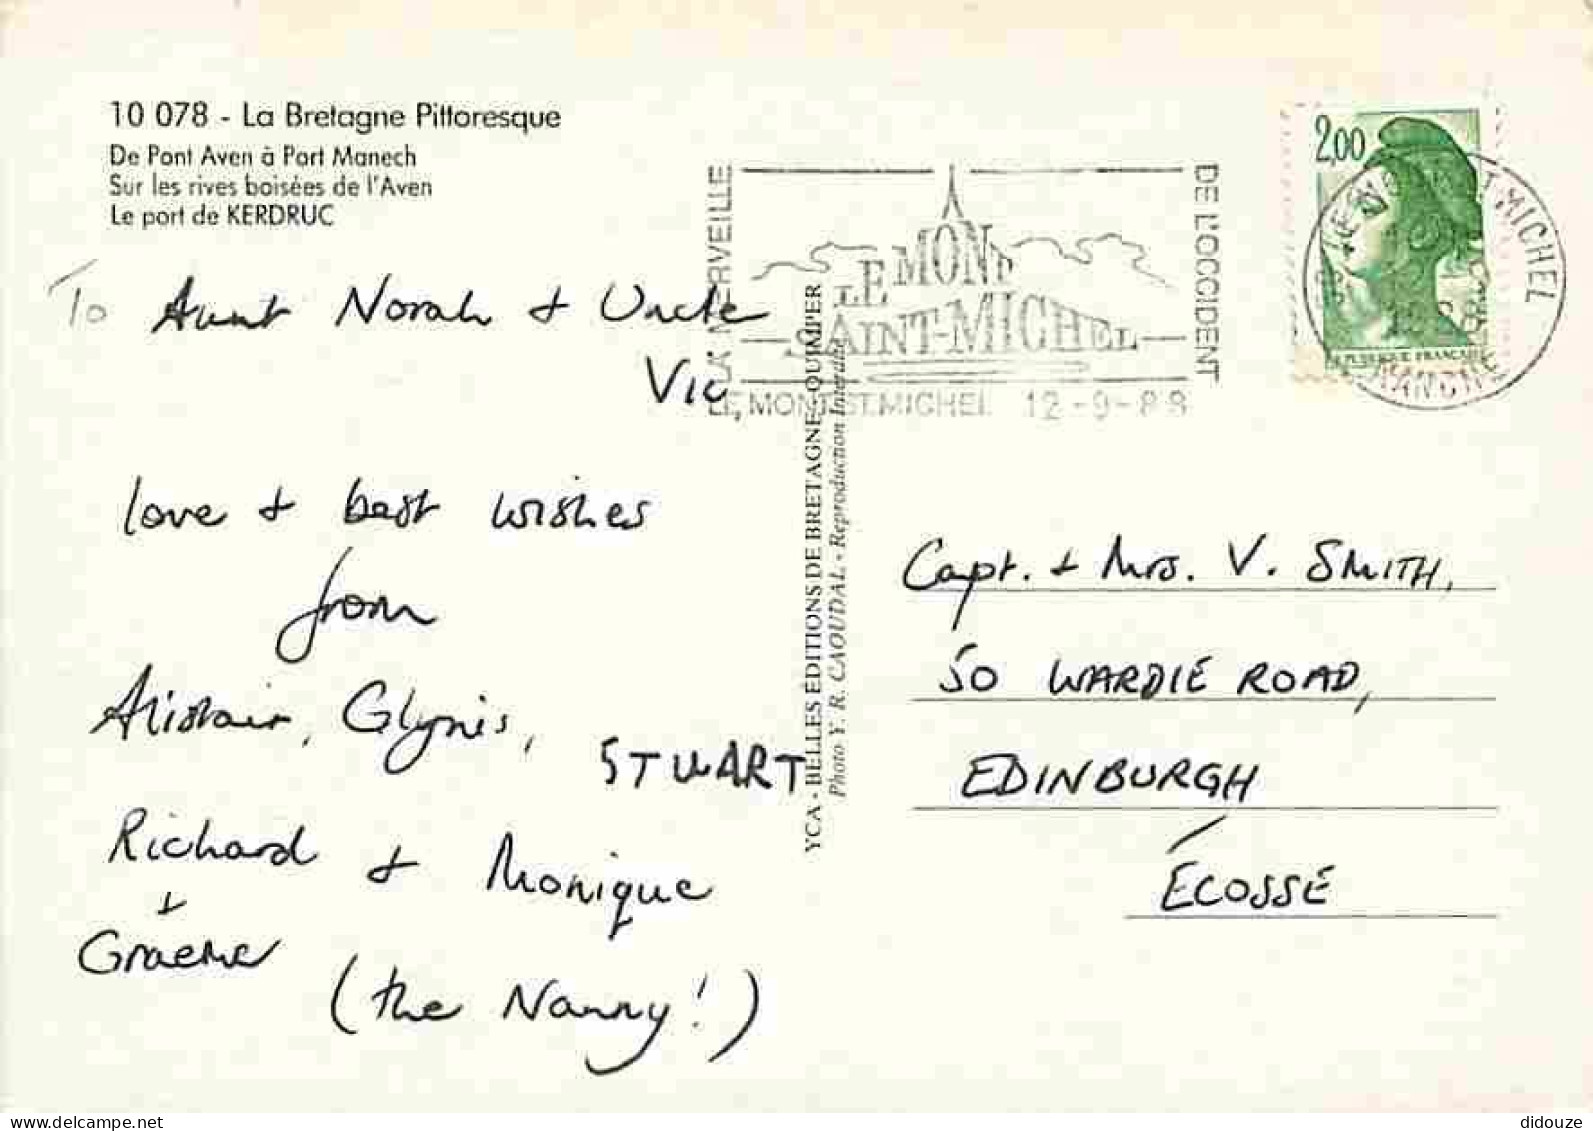 10 078 - La Bretagne Pittoresque
De Pont Aven à Port Manech
Sur les rives boisées de l'Aven
Le port de KERDRUC
To Aunt Norah + Uncle
Vic
love + best wishes
from
Alistair, Glynis,
STUART
Richard + Monique
+
Graeme
(the Nanny!)
YCA - BELLES EDITIONS DE BRETAGNE - QUIMPER
Photo Y. R. CAOUDAL - Reproduction Interdite
LA MERVEILLE
LE MONT
SAINT-MICHEL
DE L'OCCIDENT
LE MONT ST MICHEL 12-9-88
2,00
REPUBLIQUE FRANCAISE
MICHEL
MANCHE
Capt. + Mrs. V. SMITH,
50 WARDIE ROAD,
EDINBURGH
ÉCOSSE
www.delcampe.net
didouze